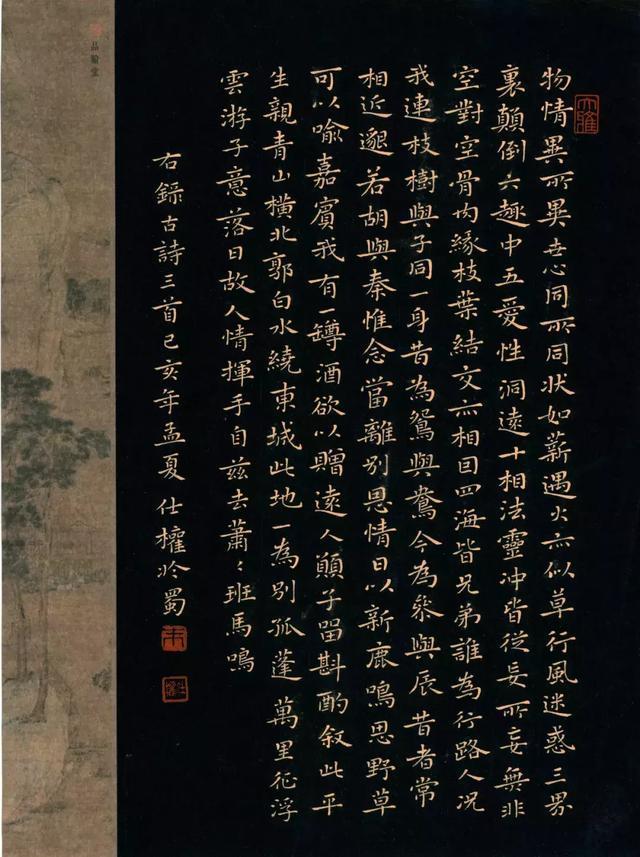 物情異所異世心同所同狀如薪遇火亦似草行風迷惑三界
裏顛倒六趣中五愛性洞遠十相法靈沖皆從妄所妄無非
空對空骨肉緣枝葉結交亦相因四海皆兄弟誰為行路人況
我連枝樹與子同一身昔為鴛與鴦今為參與辰昔者常
相近邈若胡與秦惟念當離別恩情日以新鹿鳴思野草
可以喻嘉賓我有一罇酒欲以贈遠人願子留斟酌敘此平
生親青山橫北郭白水繞東城此地一為別孤蓬萬里征浮
雲游子意落日故人情揮手自茲去蕭々班馬鳴
右錄古詩三首己亥年孟夏仕權於蜀
品翰堂